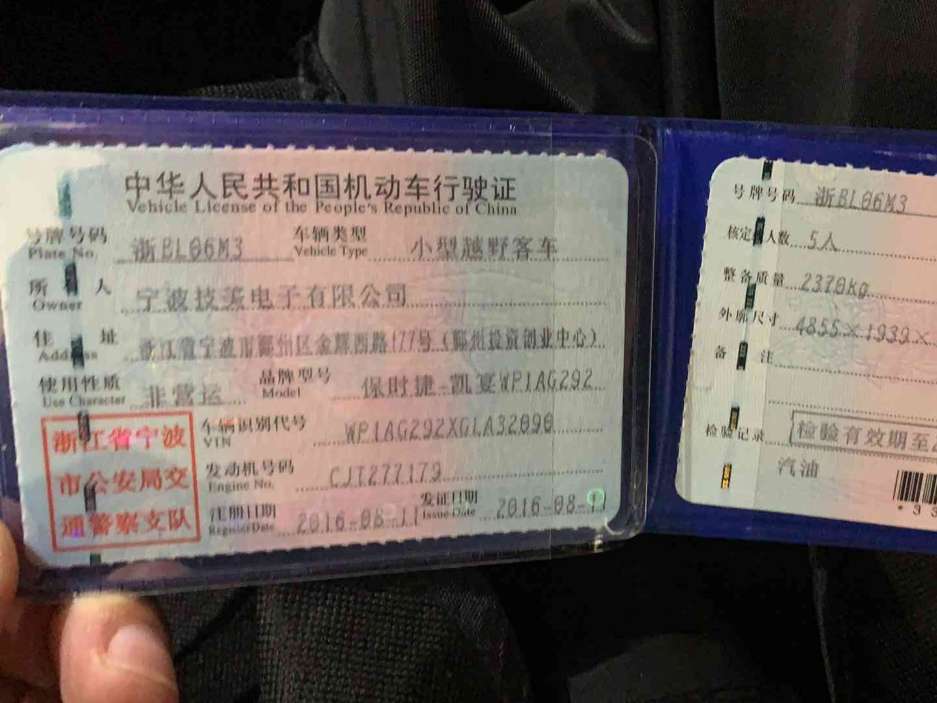 中华人民共和国机动车行驶证
Vehicle License of the People's Republic of China
号牌号码 浙BL06M3 车辆类型 小型越野客车
Plate No. Vehicle Type
所 人 宁波技 电子有限公司
Owner
住 址 浙江省宁波市鄞州区金辉西路177号(鄞州投资创业中心)
Address
使用性质 非营运 品牌型号 保时捷-凯宴WP1AG292
Use Character Model
浙江省宁波
市公安局交
通警察支队
车辆识别代号 WP1AG292XGLA32090
VIN
发动机号码 CJT277179
Engine No.
注册日期 2016-08-11 发证日期 2016-08-11
Register Date Issue Date
号牌号码 浙BL06M3
核定 人数 5人
整备质量 2370Kg
外廓尺寸 4855×1939×
备 注
检验记录 检验有效期至
汽油